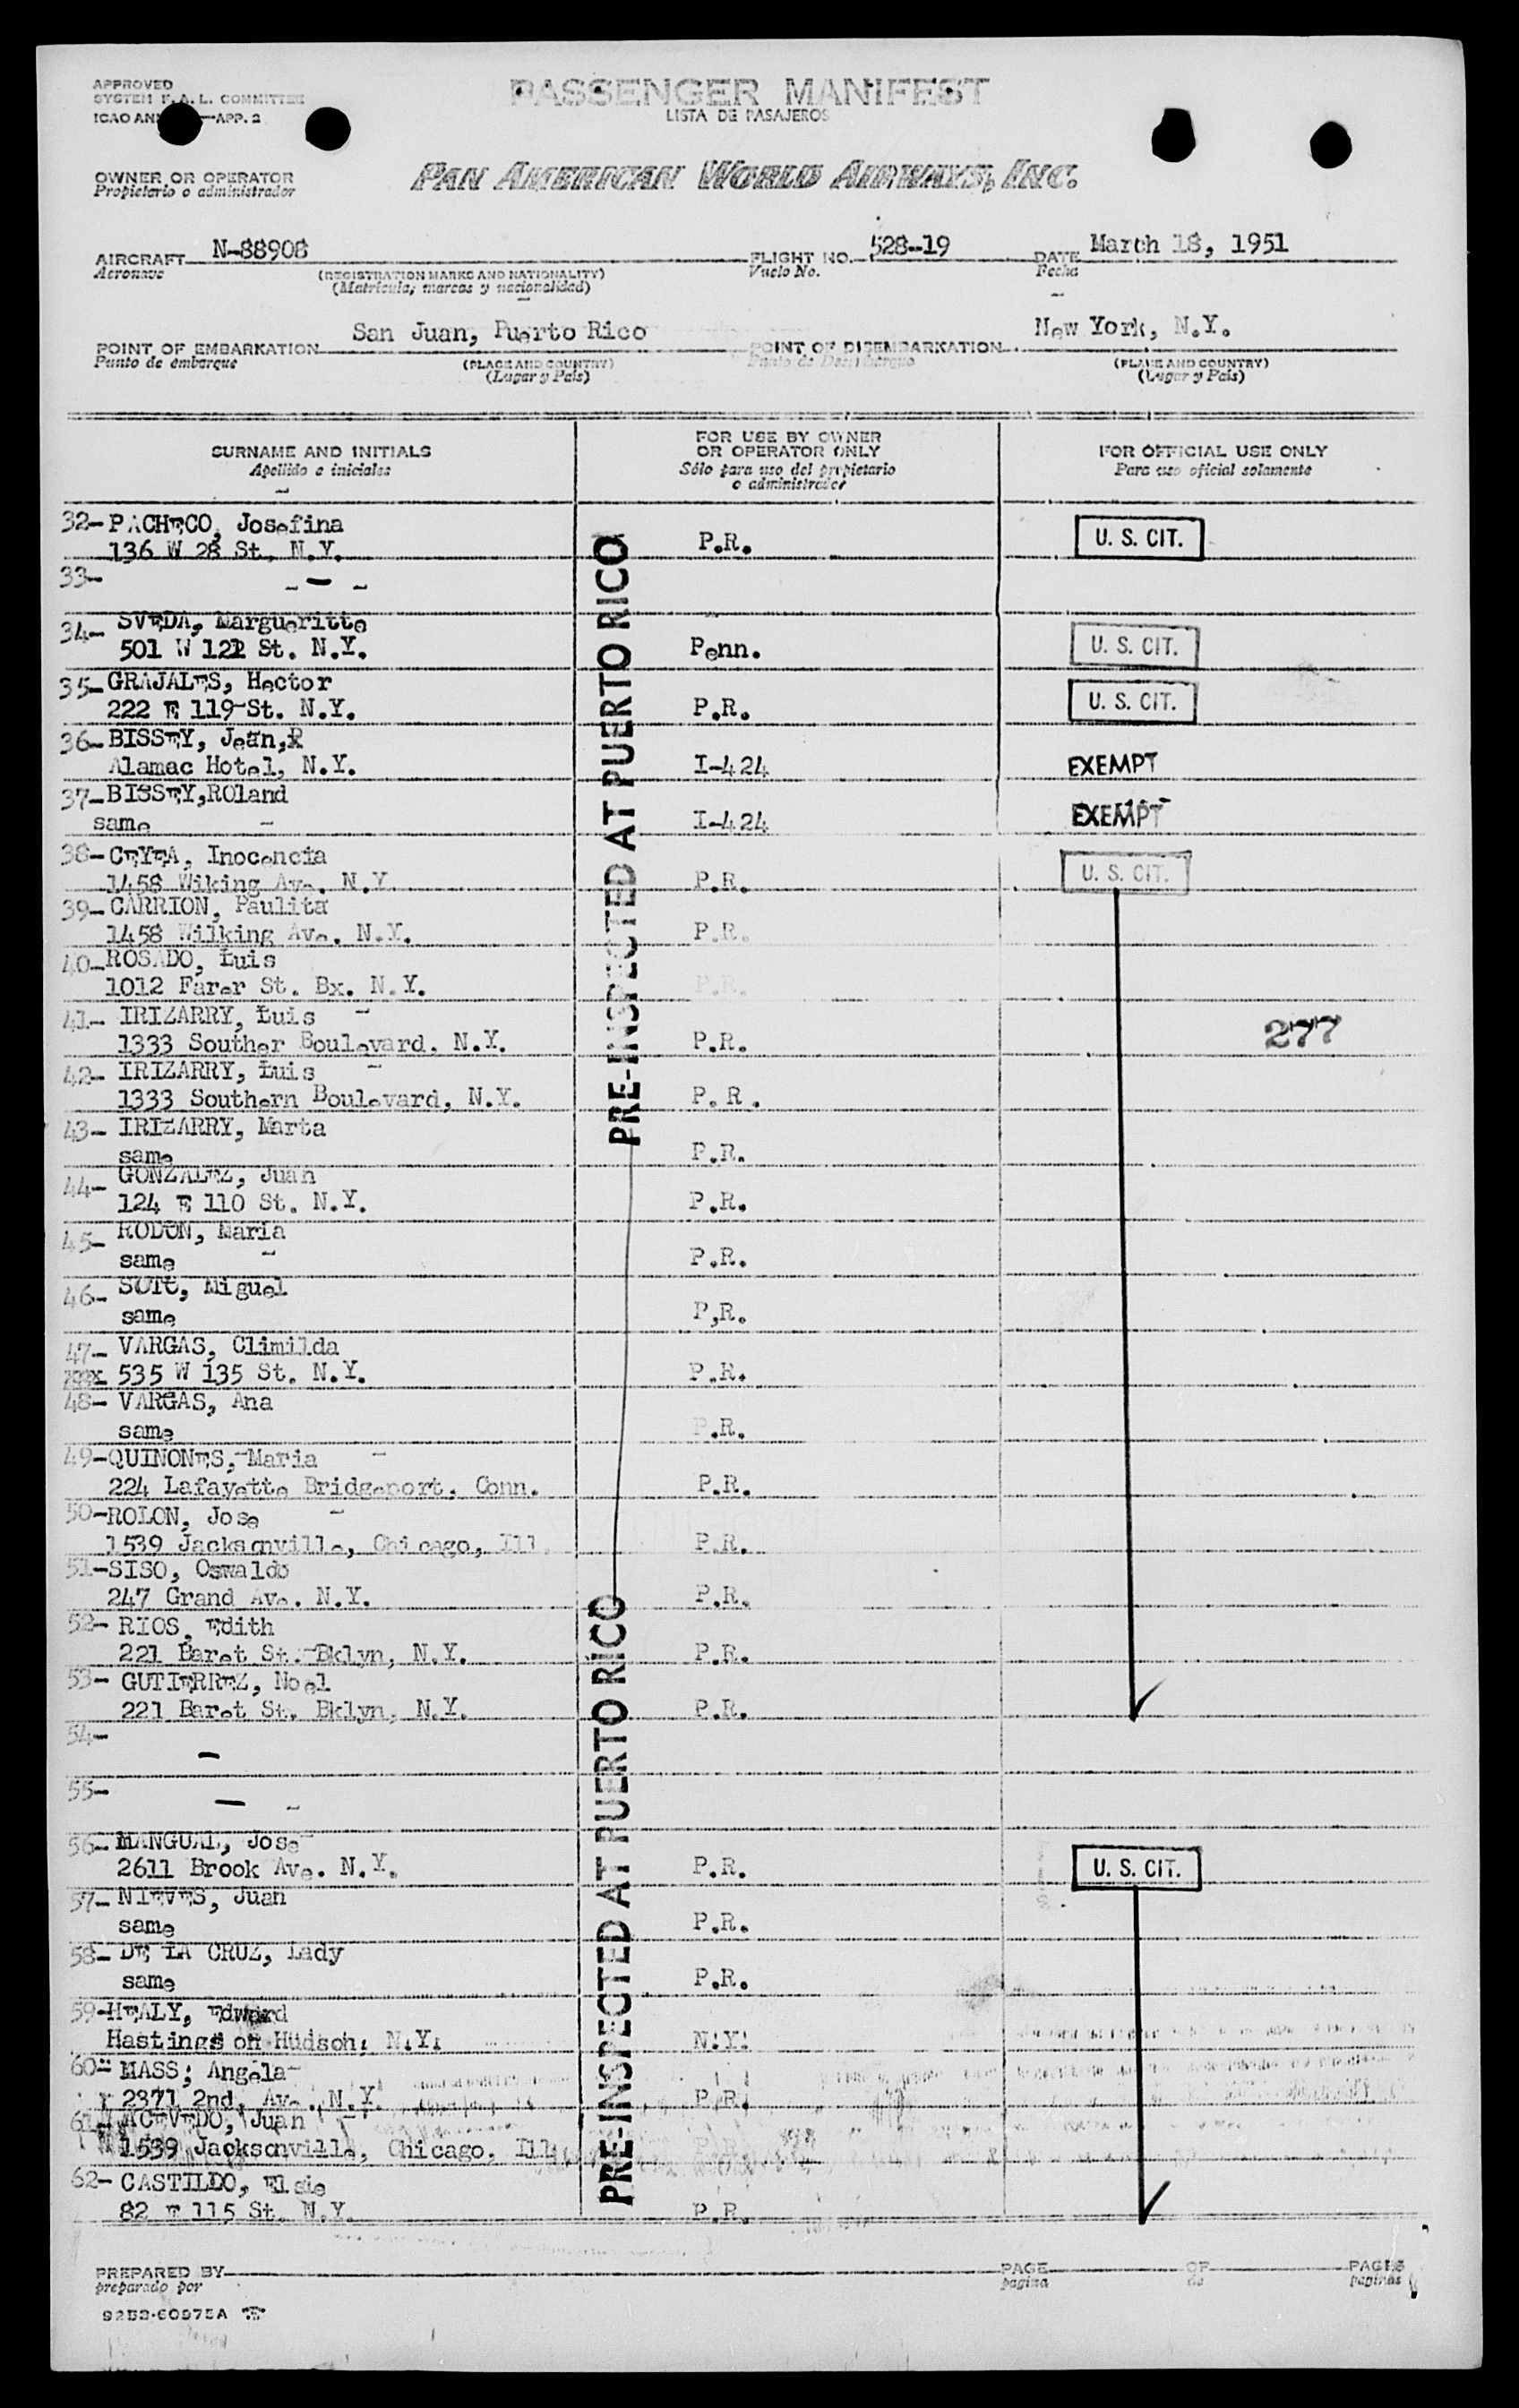 APPROVED
SYSTEM F.A.L. COMMITTEE
ICAO AN —APP. 2
PASSENGER MANIFEST
LISTA DE PASAJEROS
OWNER OR OPERATOR
Propietario o administrador
PAN AMERICAN WORLD AIRWAYS, INC.
AIRCRAFT N-88908 FLIGHT NO. 528-19 DATE March 18, 1951
Aeronave (REGISTRATION MARKS AND NATIONALITY) Vuelo No. Fecha
(Matricula, marcas y nacionalidad)
POINT OF EMBARKATION San Juan, Puerto Rico POINT OF DISEMBARKATION New York, N.Y.
Punto de embarque (PLACE AND COUNTRY) Punto de Desembarque (PLACE AND COUNTRY)
(Lugar y País) (Lugar y País)
SURNAME AND INITIALS FOR USE BY OWNER OR OPERATOR ONLY FOR OFFICIAL USE ONLY
Apellido e iniciales Sólo para uso del propietario o administrador Para uso oficial solamente
PRE-INSPECTED AT PUERTO RICO
32- PACHECO, Josefina
136 W 28 St. N.Y. P.R. U. S. CIT.
33- - - -
34- SVEDA, Margueritte
501 W 122 St. N.Y. Penn. U. S. CIT.
35- GRAJALES, Hector
222 E 119 St. N.Y. P.R. U. S. CIT.
36- BISSEY, Jean,R
Alamac Hotel, N.Y. I-424 EXEMPT
37- BISSEY,ROland
same I-424 EXEMPT
38- CEYEA, Inocencia
1458 Wiking Ave. N.Y. P.R. U. S. CIT.
39- CARRION, Paulita
1458 Wilking Ave. N.Y. P.R.
40- ROSADO, Luis
1012 Farer St. Bx. N.Y. P.R.
41- IRIZARRY, Luis
1333 Souther Boulevard, N.Y. P.R. 277
42- IRIZARRY, Luis
1333 Southern Boulevard, N.Y. P.R.
43- IRIZARRY, Marta
same P.R.
44- GONZALEZ, Juan
124 E 110 St. N.Y. P.R.
45- RODON, Maria
same P.R.
46- SOTO, Miguel
same P,R.
47- VARGAS, Climilda
535 W 135 St. N.Y. P.R.
48- VARGAS, Ana
same P.R.
49- QUINONES, Maria
224 Lafayette Bridgeport, Conn. P.R.
50- ROLON, Jose
1539 Jacksonville, Chicago, Ill. P.R.
51- SISO, Oswaldo
247 Grand Ave. N.Y. P.R.
PRE-INSPECTED AT PUERTO RICO
52- RIOS, Edith
221 Baret St. Bklyn, N.Y. P.R.
53- GUTIERREZ, Noel
221 Baret St. Bklyn, N.Y. P.R.
54-
-
55-
- -
56- MANGUAL, Jose
2611 Brook Ave. N.Y. P.R. U. S. CIT.
57- NIEVES, Juan
same P.R.
58- DE LA CRUZ, Lady
same P.R.
59- HEALY, Edward
Hastings on Hudson, N.Y. N.Y.
60- MASS, Angela
2371 2nd. Ave. N.Y. P.R.
61- ACEVEDO, Juan
1539 Jacksonville, Chicago, Ill. P.R.
62- CASTILDO, Elsie
82 E 115 St. N.Y. P.R.
PREPARED BY PAGE OF PAGES
preparado por pagina de paginas
92B2-60975A